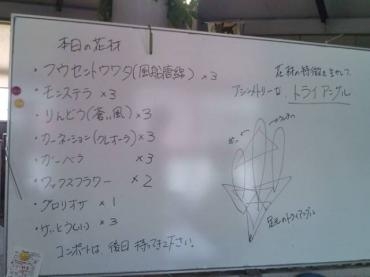 本日の花材
・フウセントウワタ(風船唐綿) ×3
・モンステラ ×3
・りんどう(蒼い風) ×3
・カーネーション(クレオーラ) ×3
・ガーベラ ×3
・ワックスフラワー ×2
・グロリオサ ×1
×3
コンポートは 後日 持ってきて下さい。
花材の特徴を生かして
アシンメトリーな トライアングル
トライアングル